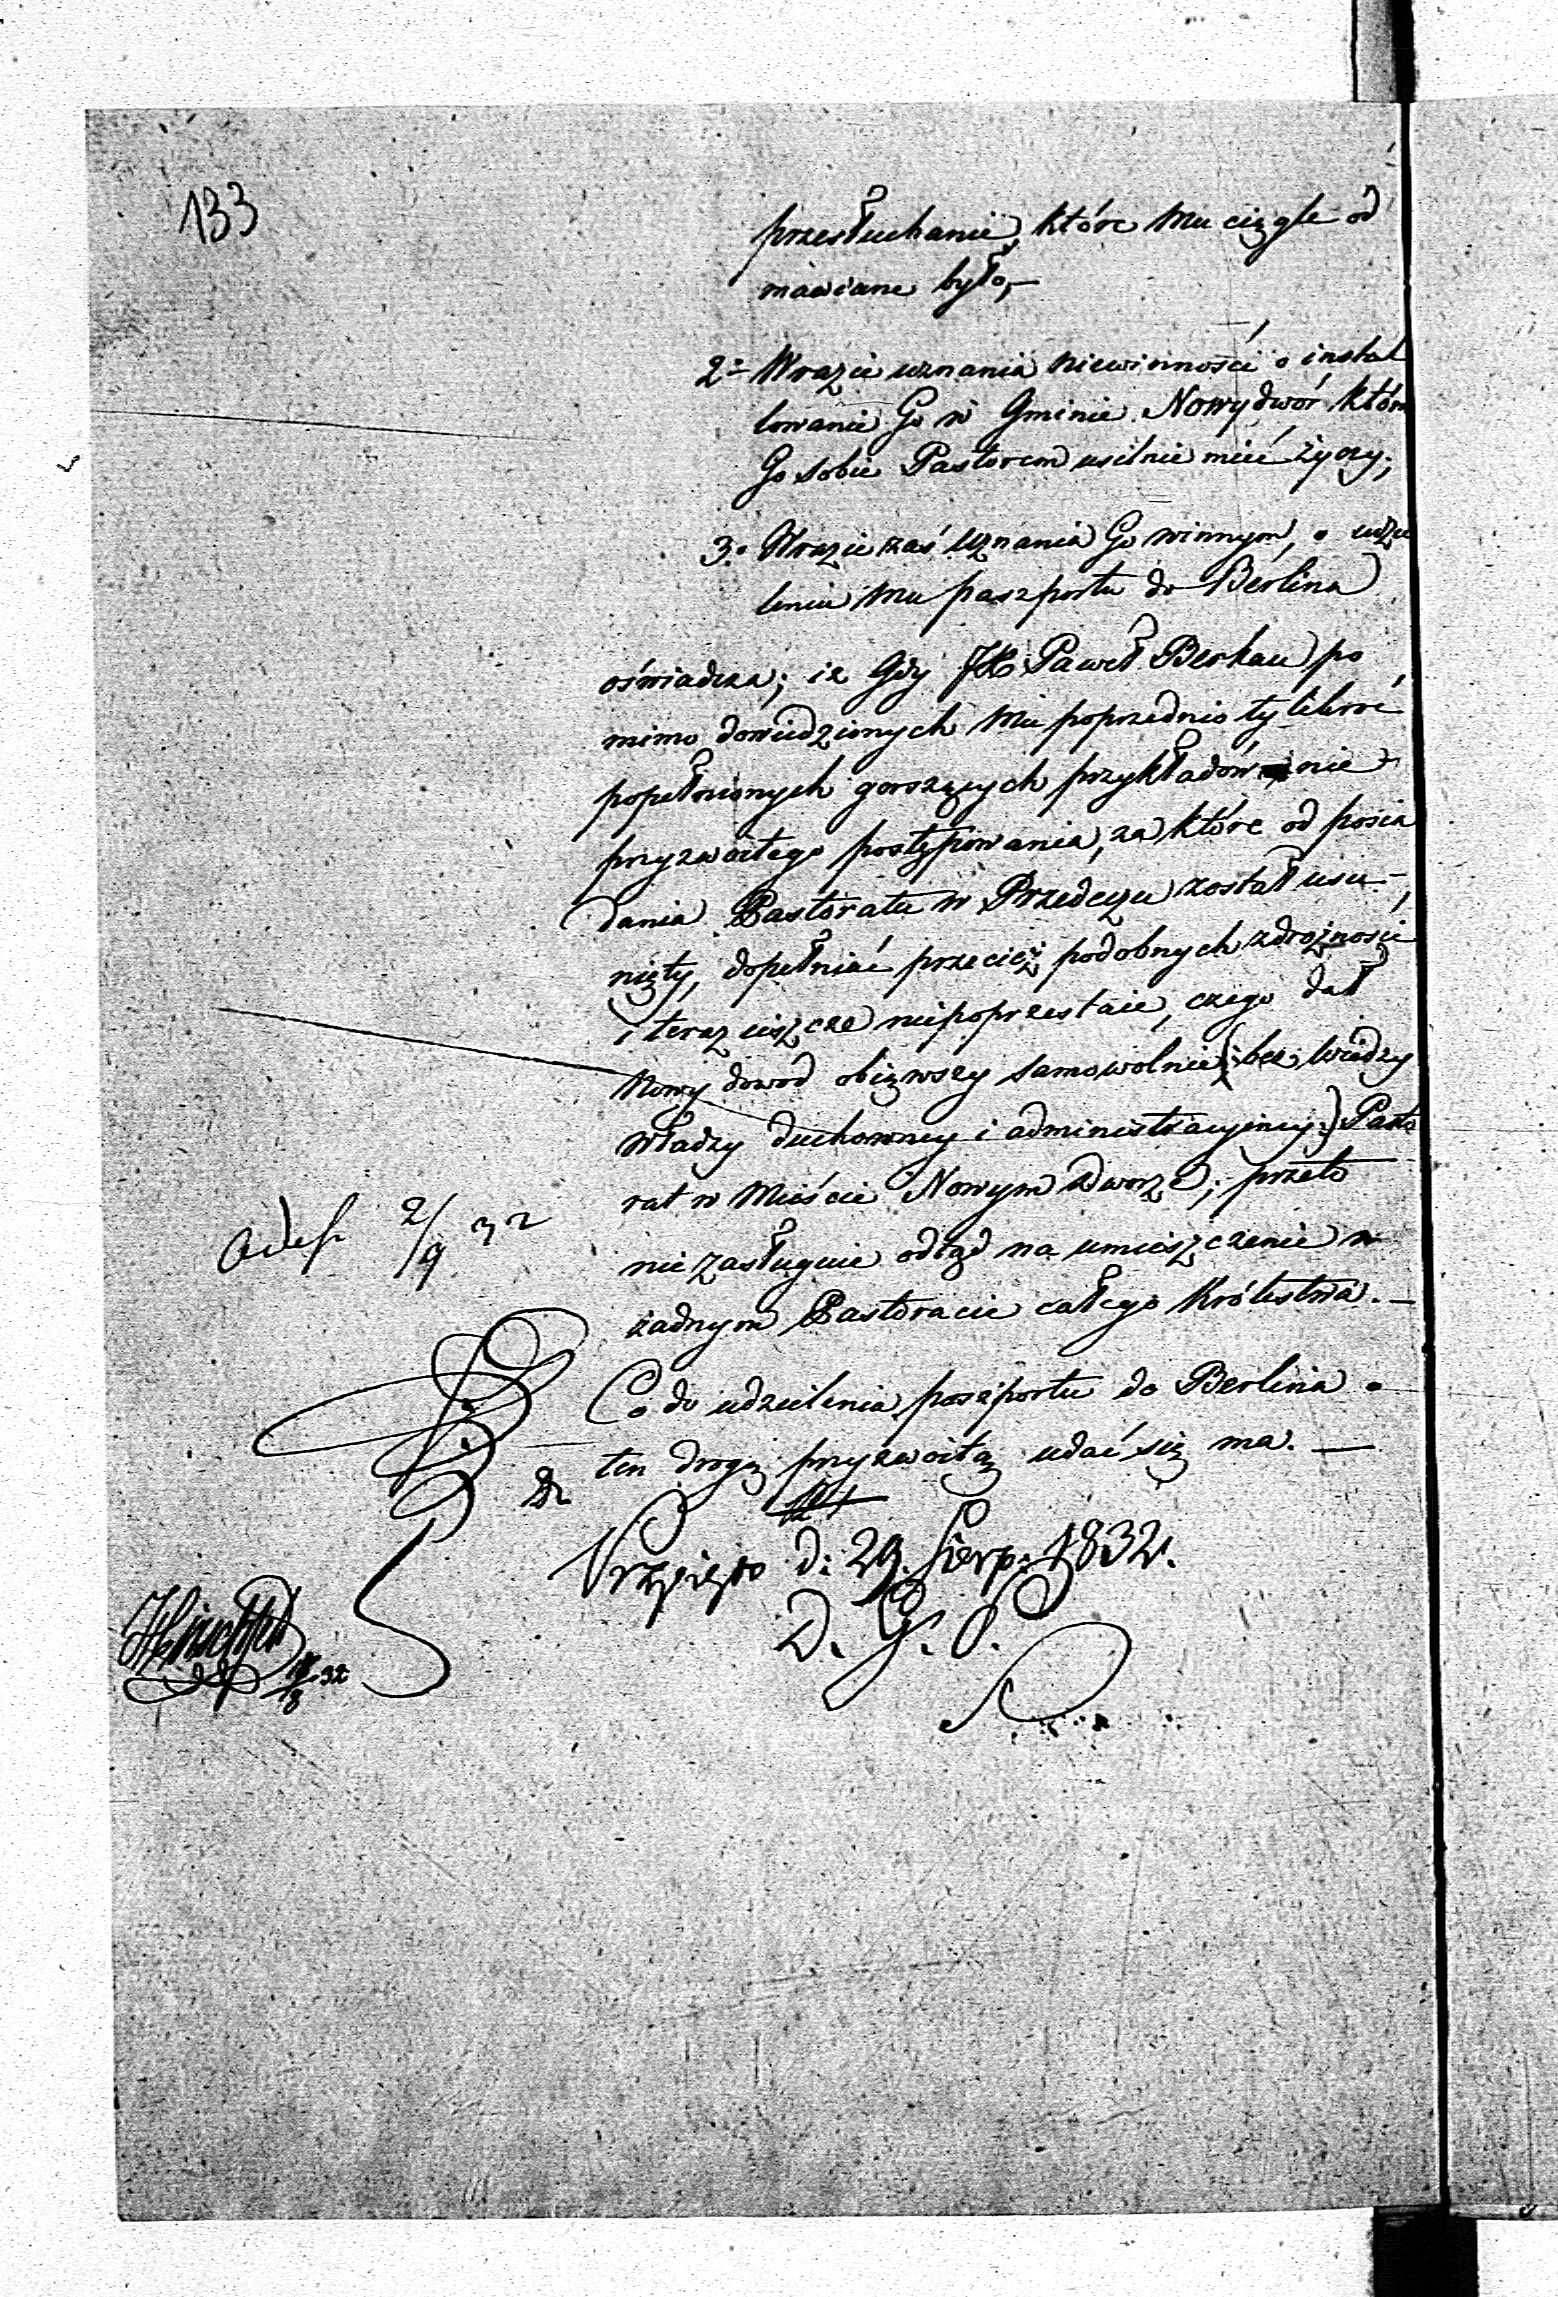 133
przesłuchanie, które mu ciągle od
mawiane było,—
2o Wrazie uznania niewinności o instal
lowanie Go w Gminie Nowydwór któr
Go sobie Pastorem usilnie mieć życzy;
3o Wrazie zaś uznania Go winnym, o udzie
lenie mu paszportu do Berlina
oświadcza; iż Gdy JX Paweł Berkau po
mimo dowiedzionych mu poprzednio tylikroć
popełnionych gorszących przykładów nie
przyzwoitego postępowania, za które od posia
dania Pastoratu w Przedeczu został usu-
nięty, dopełniać przecież podobnych zdrożności
i teraz ieszcze niepoprzestaie, czego dał
Nowy dowód obiąwszy samowolnie (: bez wiedzy
Władzy duchowney i administracyiney :) Pasto
rat w Mieście Nowym Dworze; przeto
nie zasługuie odtąd na umieszczenie w
żadnym Pastoracie całego Królestwa.—
Co do udzielenia paszportu do Berlina o
ten drogą przyzwoitą udać się ma.—
2/9 32
Przyięto d: 29. Sierp. 1832.
D. G. P.
32